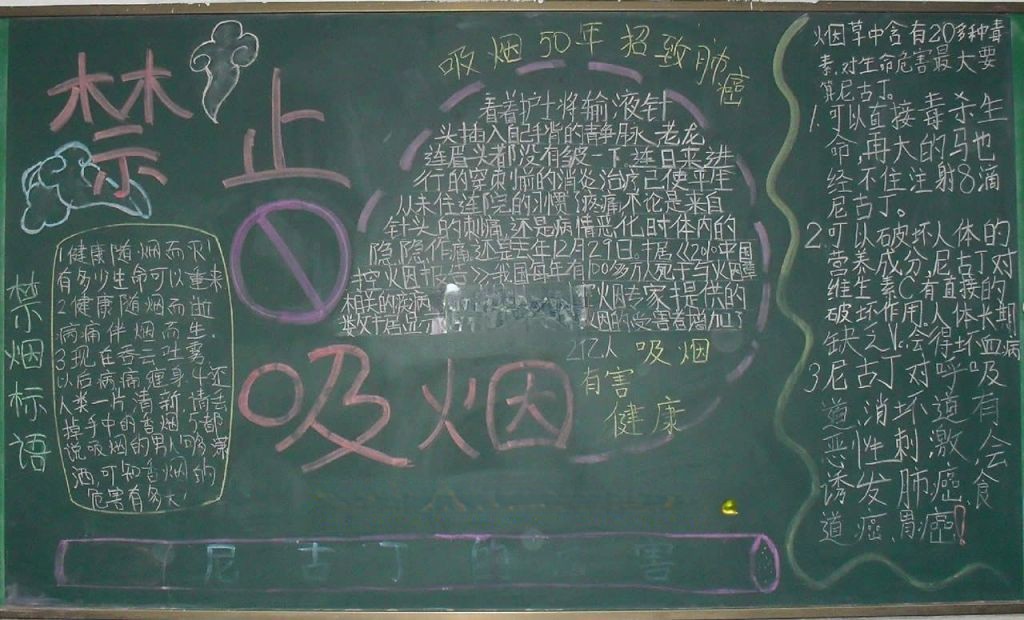 禁止
吸烟
禁烟标语
1健康随烟而灭!
有多少生命可以重来
2健康随烟而逝
病痛伴烟而生.
3现在吞云吐雾
以后病痛缠身.4还
人类一片清新.请丢
掉手中的香烟.5都
说吸烟的男人吸潇
洒,可知香烟的
危害有多大!
吸烟50年招致肺癌
看着护士将输液针
头插入自己手背的静脉,老龙
连眉头都没有皱一下.连日来进
行的穿刺前的消炎治疗已使平生
从未住过院的习惯疼痛不论是来自
针头的刺痛,还是病情恶化时体内的
隐隐作痛.还是去年12月29日.
控烟报告》我国每年有100多万人死于与火烟
相关的疾病
火烟专家提供的
火烟的受害者增加了
2亿人
吸烟
有害
健康
烟草中含有20多种毒
素.对生命危害最大要
算尼古丁。
1.可以直接毒杀生
命,再大的马也
经不住注射8滴
尼古丁。
2.可以破坏人体的
营养成分,尼古丁对
维生素C有直接的
破坏作用.人体长期
缺乏Vc会得坏血病
3尼古丁对呼吸
道消坏道有
恶性刺激会
诱发肺癌食
道癌、胃癌!
尼古丁的 害